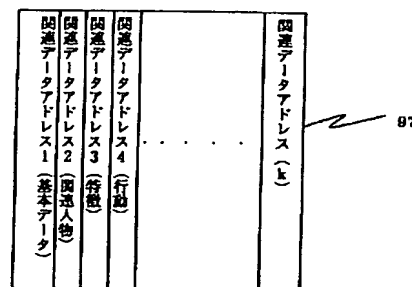 関連データアドレス1(基本データ)
関連データアドレス2(関連人物)
関連データアドレス3(特徴)
関連データアドレス4(行動)
. . . . .
関連データアドレス(k)
97